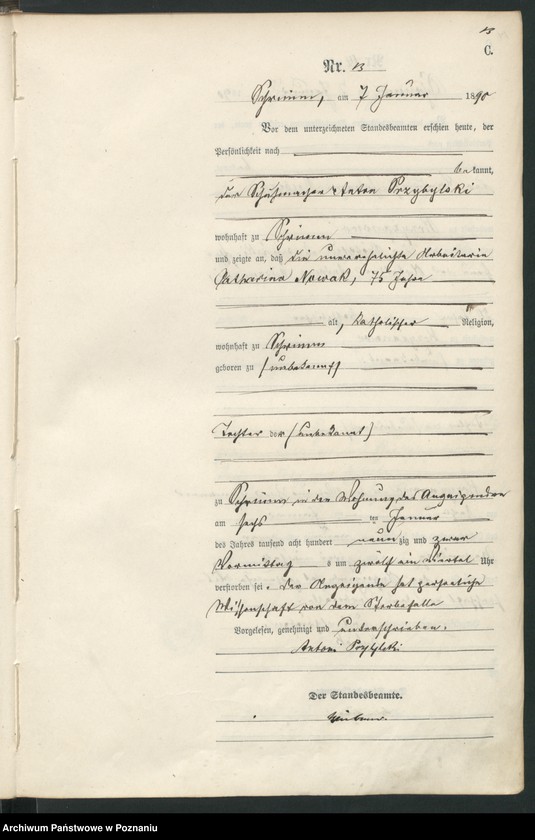 13
C.
Nr. 13
Schrimm, am 7 Januar 1890
Vor dem unterzeichneten Standesbeamten erschien heute, der
Persönlichkeit nach
bekannt,
der Schuhmacher Anton Przybylski
wohnhaft zu Schrimm
und zeigte an, daß die unverehelichte Arbeiterin
Katharina Nowak, 75 Jahre
alt, katholischer Religion,
wohnhaft zu Schrimm
geboren zu (unbekannt)
Tochter der (unbekannt)
zu Schrimm in der Wohnung des Anzeigenden
am sechs ten Januar
des Jahres tausend acht hundert neunzig und zwar
Vormittag s um zwölf ein Viertel Uhr
verstorben sei. Der Anzeigende hat persönliche
Wissenschaft von dem Sterbefalle
Vorgelesen, genehmigt und unterschrieben.
Antoni
Der Standesbeamte.
Archiwum Państwowe w Poznaniu